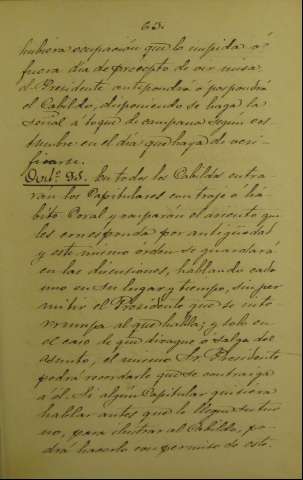 63.
hubiera ocupación que lo impida ó si
fuera dia de precepto de oir misa
el Presidente antepondrá o pospondrá
el Cabildo, disponiendo se haga la
señal á toque de campana segun cos
tumbre en el dia que haya de veri-
ficarse.
Art.º 93. En todos los Cabildos entra-
rán los Capitulares con traje ó há-
bito Coral y ocuparán el asiento que
les corresponda por antigüedad
y este mismo órden se guardará
en las discusiones, hablando cada
uno en su lugar y tiempo, sin per
mitir el Presidente que se inte-
rrumpa al que habla; y solo en
el caso de que divague ó salga del
asunto, el mismo Sr. Presidente
podrá recordarle que se contraiga
á él. Si algún Capitular quisiera
hablar antes que le llegue su tur
no, para ilustrar al Cabildo, po-
drá hacerlo con permiso de este.